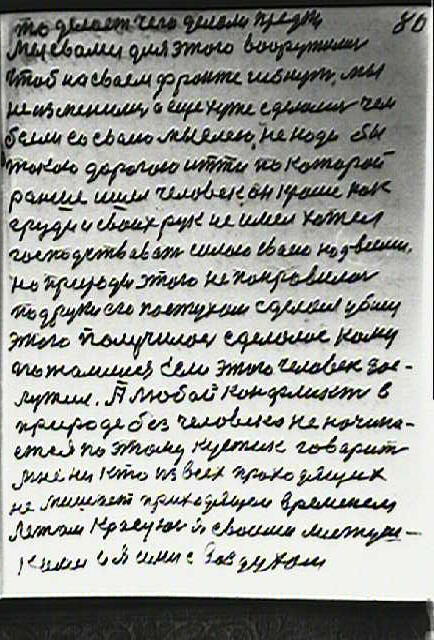 то делает чего делали предки 80
мы свами для этого вооружили
Чтоб на своем фронте гибнут, мы
не изменили, а еще хуже сделали чем
были со своею мыслею, не надо бы
такою дорогою итти по которой
ранше шли человек он кроме как
груди и своих рук не имел хотел
господствават силою свою над всеми,
но природе этого не понравилос
подруки его постухом сделал
этого получилос сделалос кому
это человек зас-
лужил. А любой конфликт в
природе без человека не начина-
ется по этому кустик говарит
мне ни кто из всех проходящих
не мешает приходящем временем
Летом Красуюс я своими
Ками и я с Воздухом